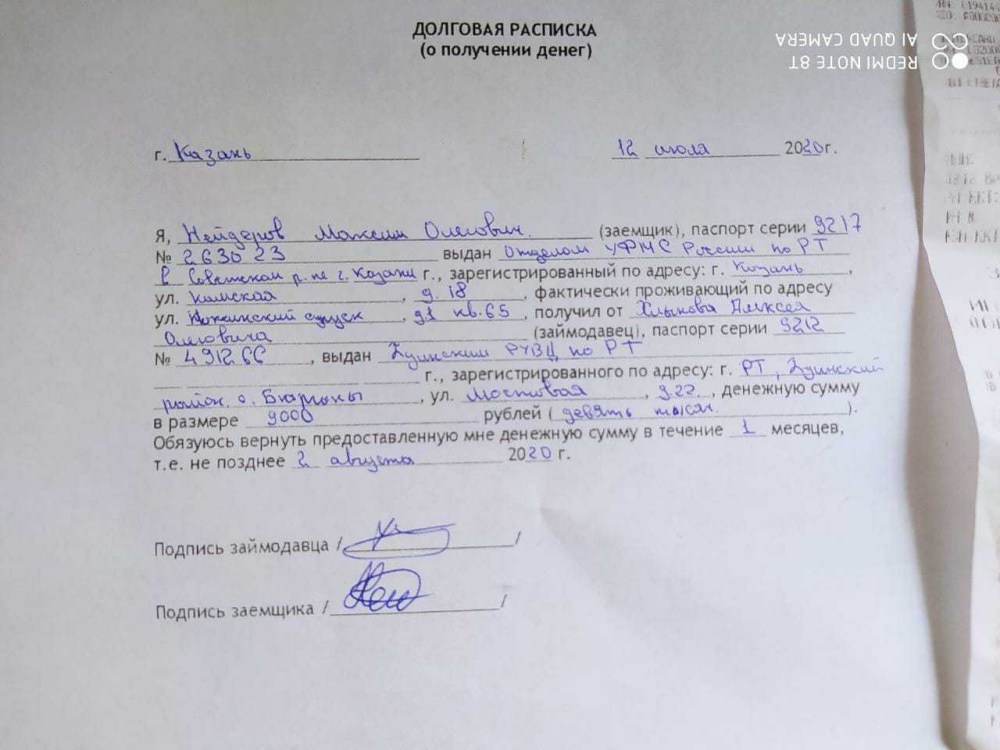 ДОЛГОВАЯ РАСПИСКА
(о получении денег)
REDMI NOTE 8T
AI QUAD CAMERA
г. Казань 12 июля 2020г.
Я, Нейдеров Максим Олегович. (заемщик), паспорт серии 9217
№ 263023 выдан Отделом УФМС России по РТ
в Советском р-не г. Казани г., зарегистрированный по адресу: г. Казань,
ул. Камская, д. 18, фактически проживающий по адресу
ул. спуск, кв. 65, получил от Алексея
Олеговича (займодавец), паспорт серии 9212
№ 491266, выдан РУВД по РТ
г., зарегистрированного по адресу: г. РТ,
район, ул. Мостовая, д22, денежную сумму
в размере 9000 рублей ( девять тысяч. ).
Обязуюсь вернуть предоставленную мне денежную сумму в течение 1 месяцев,
т.е. не позднее 2 августа 2020 г.
Подпись займодавца / /
Подпись заемщика / /